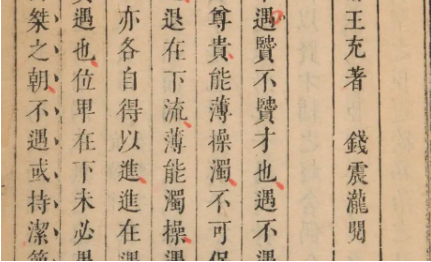 王充著 錢震瀧閱
遇贒不贒才也遇不遇
尊貴能薄操濁不可保
退在下流薄能濁操遇
亦各自得以進進在遇
遇也位卑在下未必愚
桀之朝不遇或持潔節